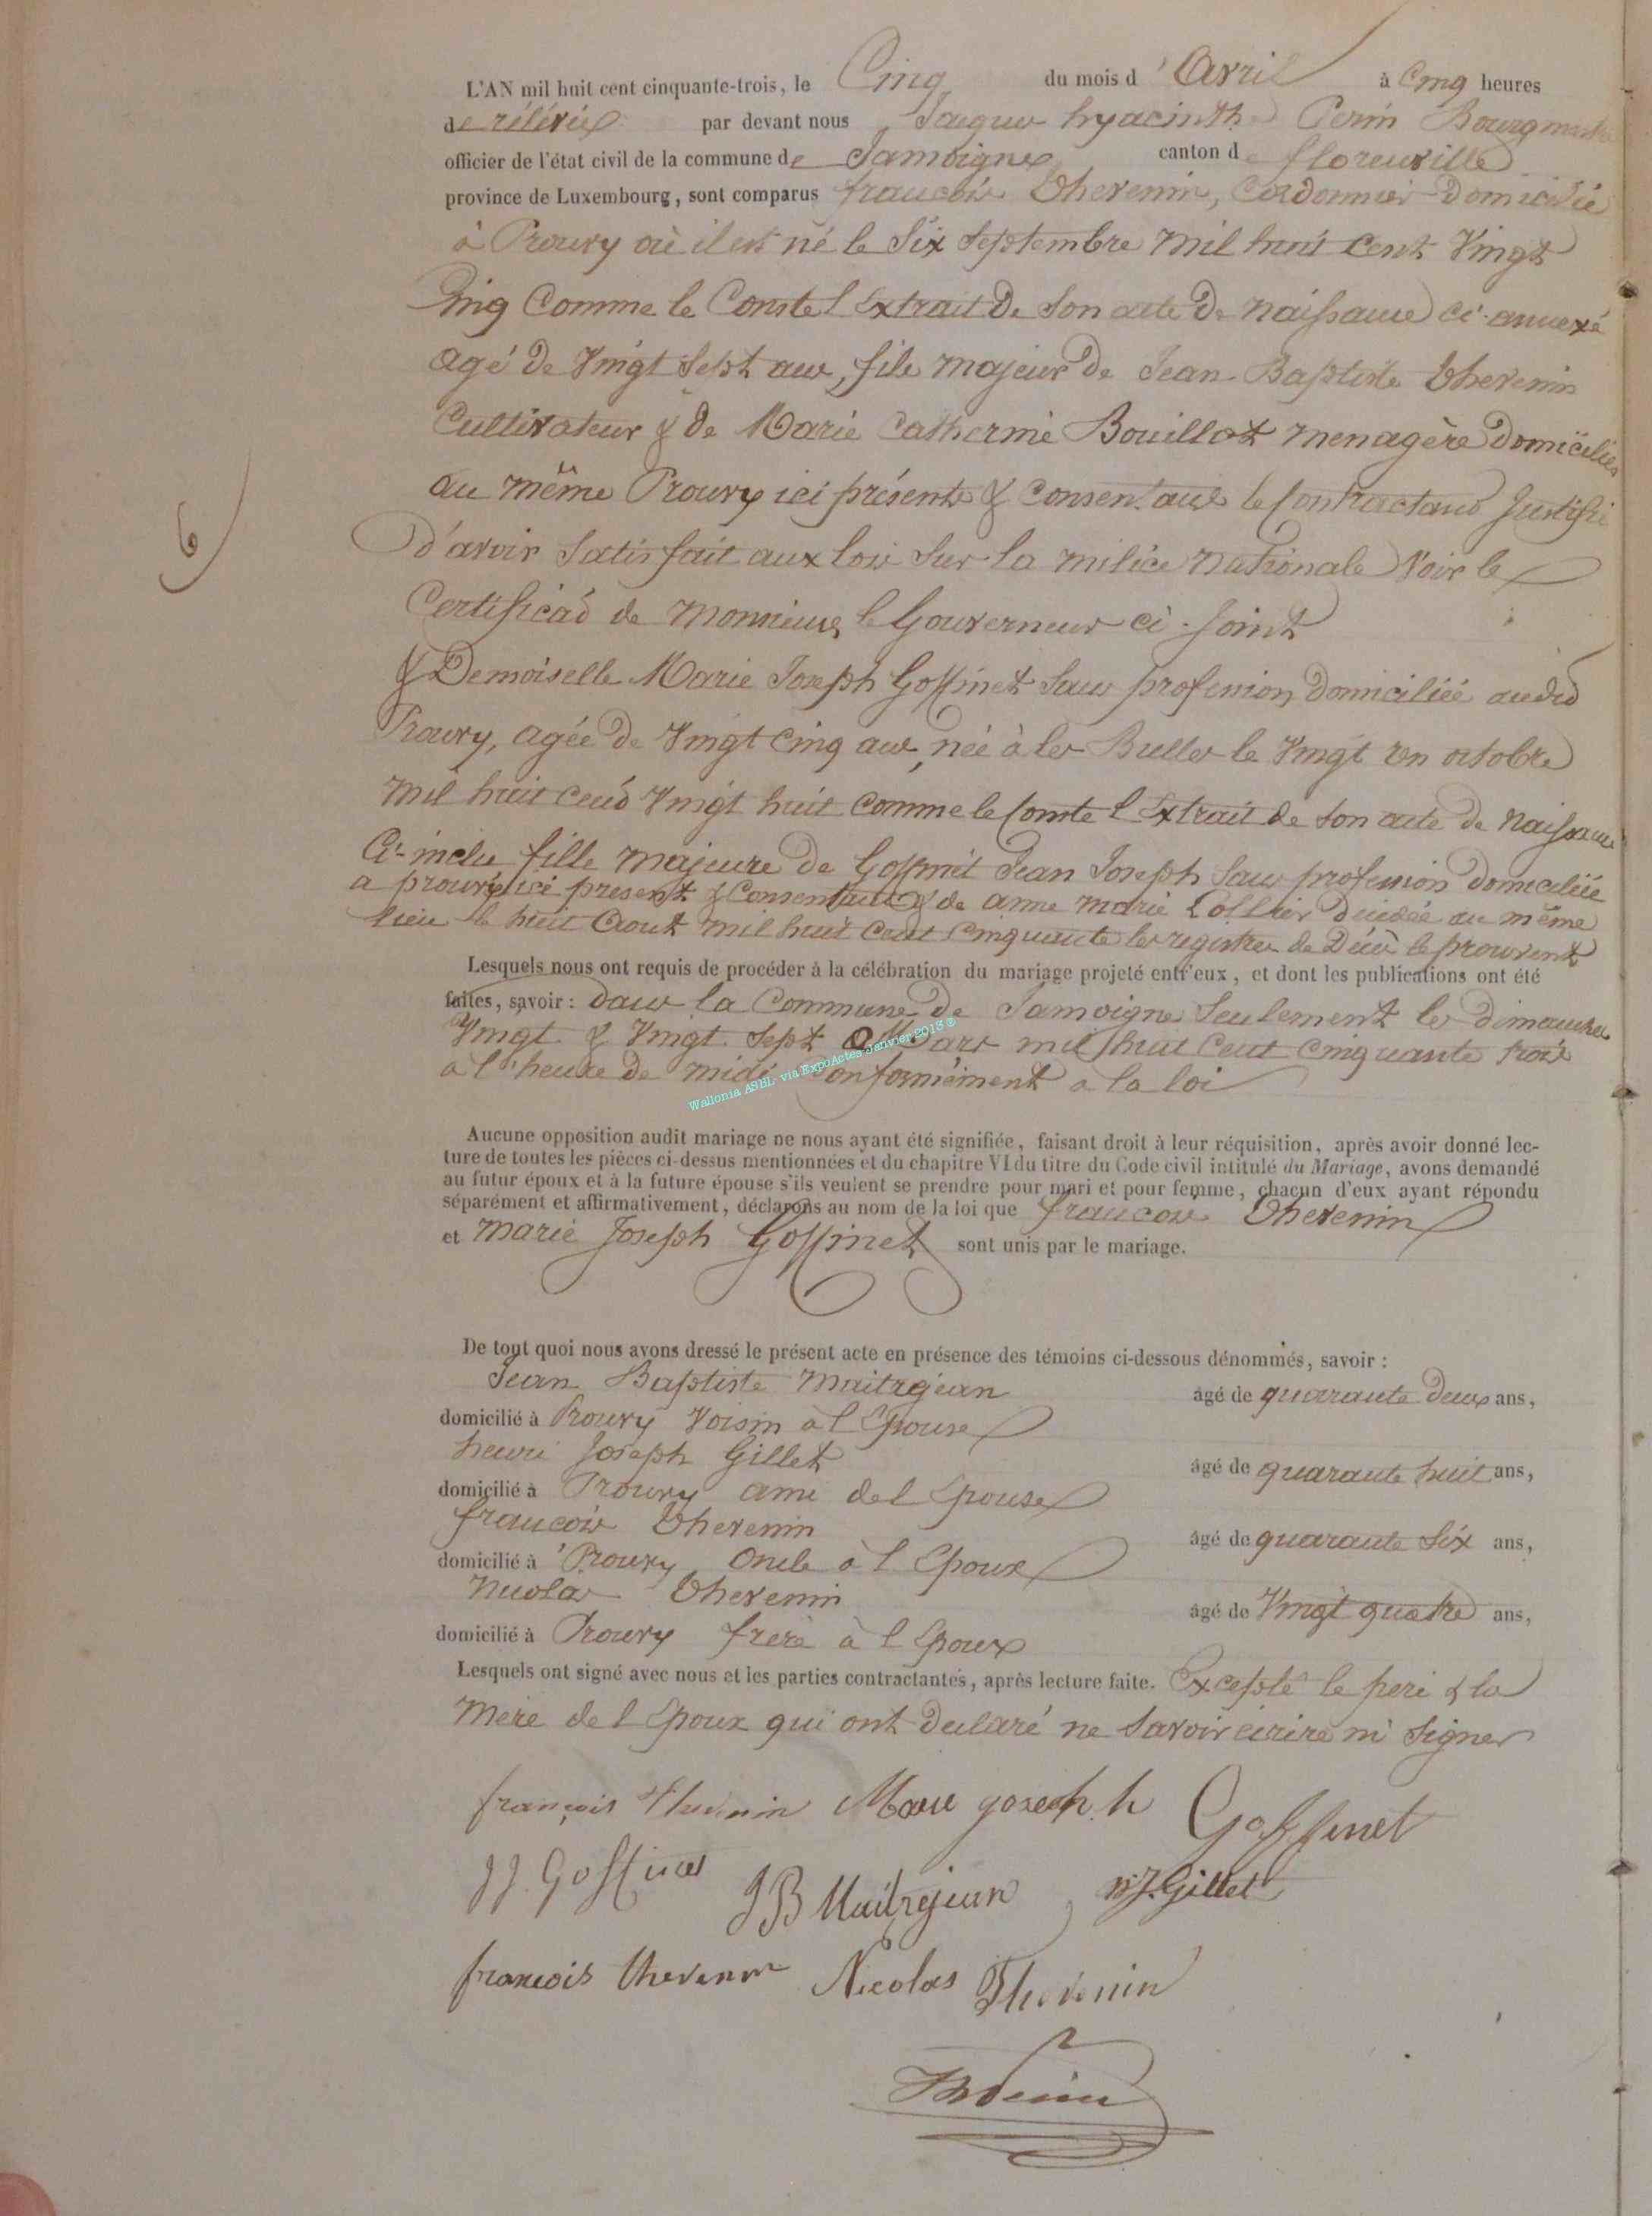 L'AN mil huit cent cinquante-trois, le Cinq du mois d'Avril à Cinq heures
de rélévéé par devant nous Jaques hyacinthe Perin Bourgmestre
officier de l'état civil de la commune de Jamoigne canton de floreuville
province de Luxembourg, sont comparus francois Thevenin, Cordonnier Domicilié
à Prouvy où il est né le Six Septembre Mil huit cent Vingt
Cinq Comme le Conste l'Extrait De Son acte De naissance ci-annexé
agé de Vingt Sept ans, fils majeur De Jean Baptiste Thevenin
Cultivateur & de Marie Catherine Bouillot menagère Domiciliés
au même Prouvy ici présents & Consentans le Contractant Justifie
D'avoir Satisfait aux lois Sur la milice nationale Voir le
Certificat de Monsieur le Gouverneur ci-Joint
& Demoiselle Marie Joseph Goffinet Sans profession Domiciliée audit
Prouvy, agée De Vingt Cinq ans, née à les Bulles le Vingt un octobre
Mil huit cent Vingt huit Comme le Conste l'Extrait de Son acte De Naissance
Ci-inclu fille majeure De Goffinet Jean Joseph Sans profession Domiciliée
a prouvy ici present & Consentant & de anne marie Décédée au même
lieu le huit Aout mil huit Cent Cinquante les registres de Décès le prouvent
Lesquels nous ont requis de procéder à la célébration du mariage projeté entr'eux, et dont les publications ont été
faites, savoir : Dans la Commune De Jamoigne Seulement les dimanches
Vingt & Vingt Sept Mars mil huit Cent Cinquante trois
à l'heure De midi Conformément a la loi
Wallonia ASBL via ExpoActes Janvier 2013 ©
Aucune opposition audit mariage ne nous ayant été signifiée, faisant droit à leur réquisition, après avoir donné lec-
ture de toutes les pièces ci-dessus mentionnées et du chapitre VI du titre du Code civil intitulé du Mariage, avons demandé
au futur époux et à la future épouse s'ils veulent se prendre pour mari et pour femme, chacun d'eux ayant répondu
séparément et affirmativement, déclarons au nom de la loi que francois Thevenin
et Marie Joseph Goffinet sont unis par le mariage.
De tout quoi nous avons dressé le présent acte en présence des témoins ci-dessous dénommés, savoir :
Jean Baptiste Maitrejean âgé de quarante Deux ans,
domicilié à Prouvy Voisin à l'Epouse
henri Joseph Gillet âgé de quarante huit ans,
domicilié à Prouvy ami de l'Epouse
francois Thevenin âgé de quarante Six ans,
domicilié à Prouvy Oncle à l'Epoux
Nicolas Thevenin âgé de Vingt quatre ans,
domicilié à Prouvy frère à l'Epoux
Lesquels ont signé avec nous et les parties contractantes, après lecture faite. Excepté le pere & la
Mère de l'Epoux qui ont Déclaré ne Savoir écrire ni Signer
6
françois Thevenin Marie gosephh Goffinet
JJ. Goffinet JB Maitrejean H.J. Gillet
francois thevenin Nicolas Thevenin